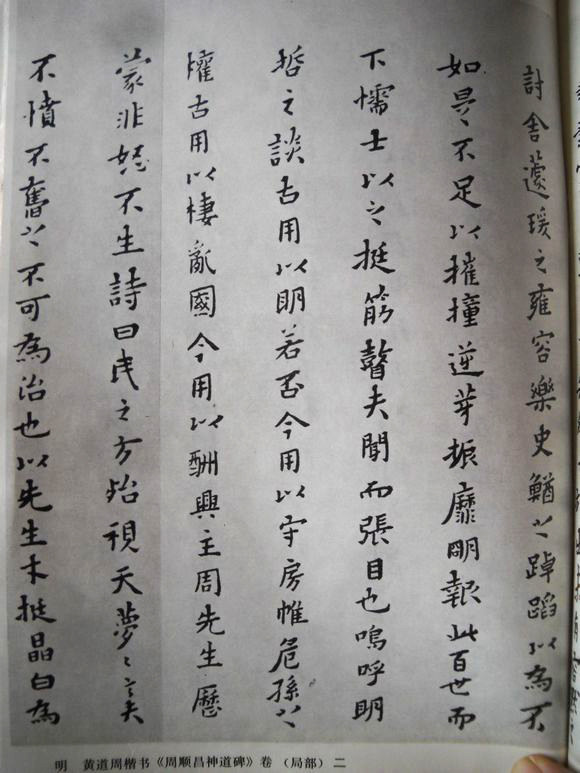 討舍蘧瑗之雍容樂史鰌之踔蹈以為不
如是不足以摧撞逆芽振靡明報此百世而
下懦士以之挺筋瞽夫聞而張目也嗚呼明
哲之談古用以明若否今用以守房帷危孫之
權古用以棲亂國今用以酬興主周先生歷
蒙非不生詩曰民之方殆視天夢夢言夫
不憤不奮之不可為治也以先生木挺晶白為
明 黄道周楷书《周顺昌神道碑》卷（局部）二